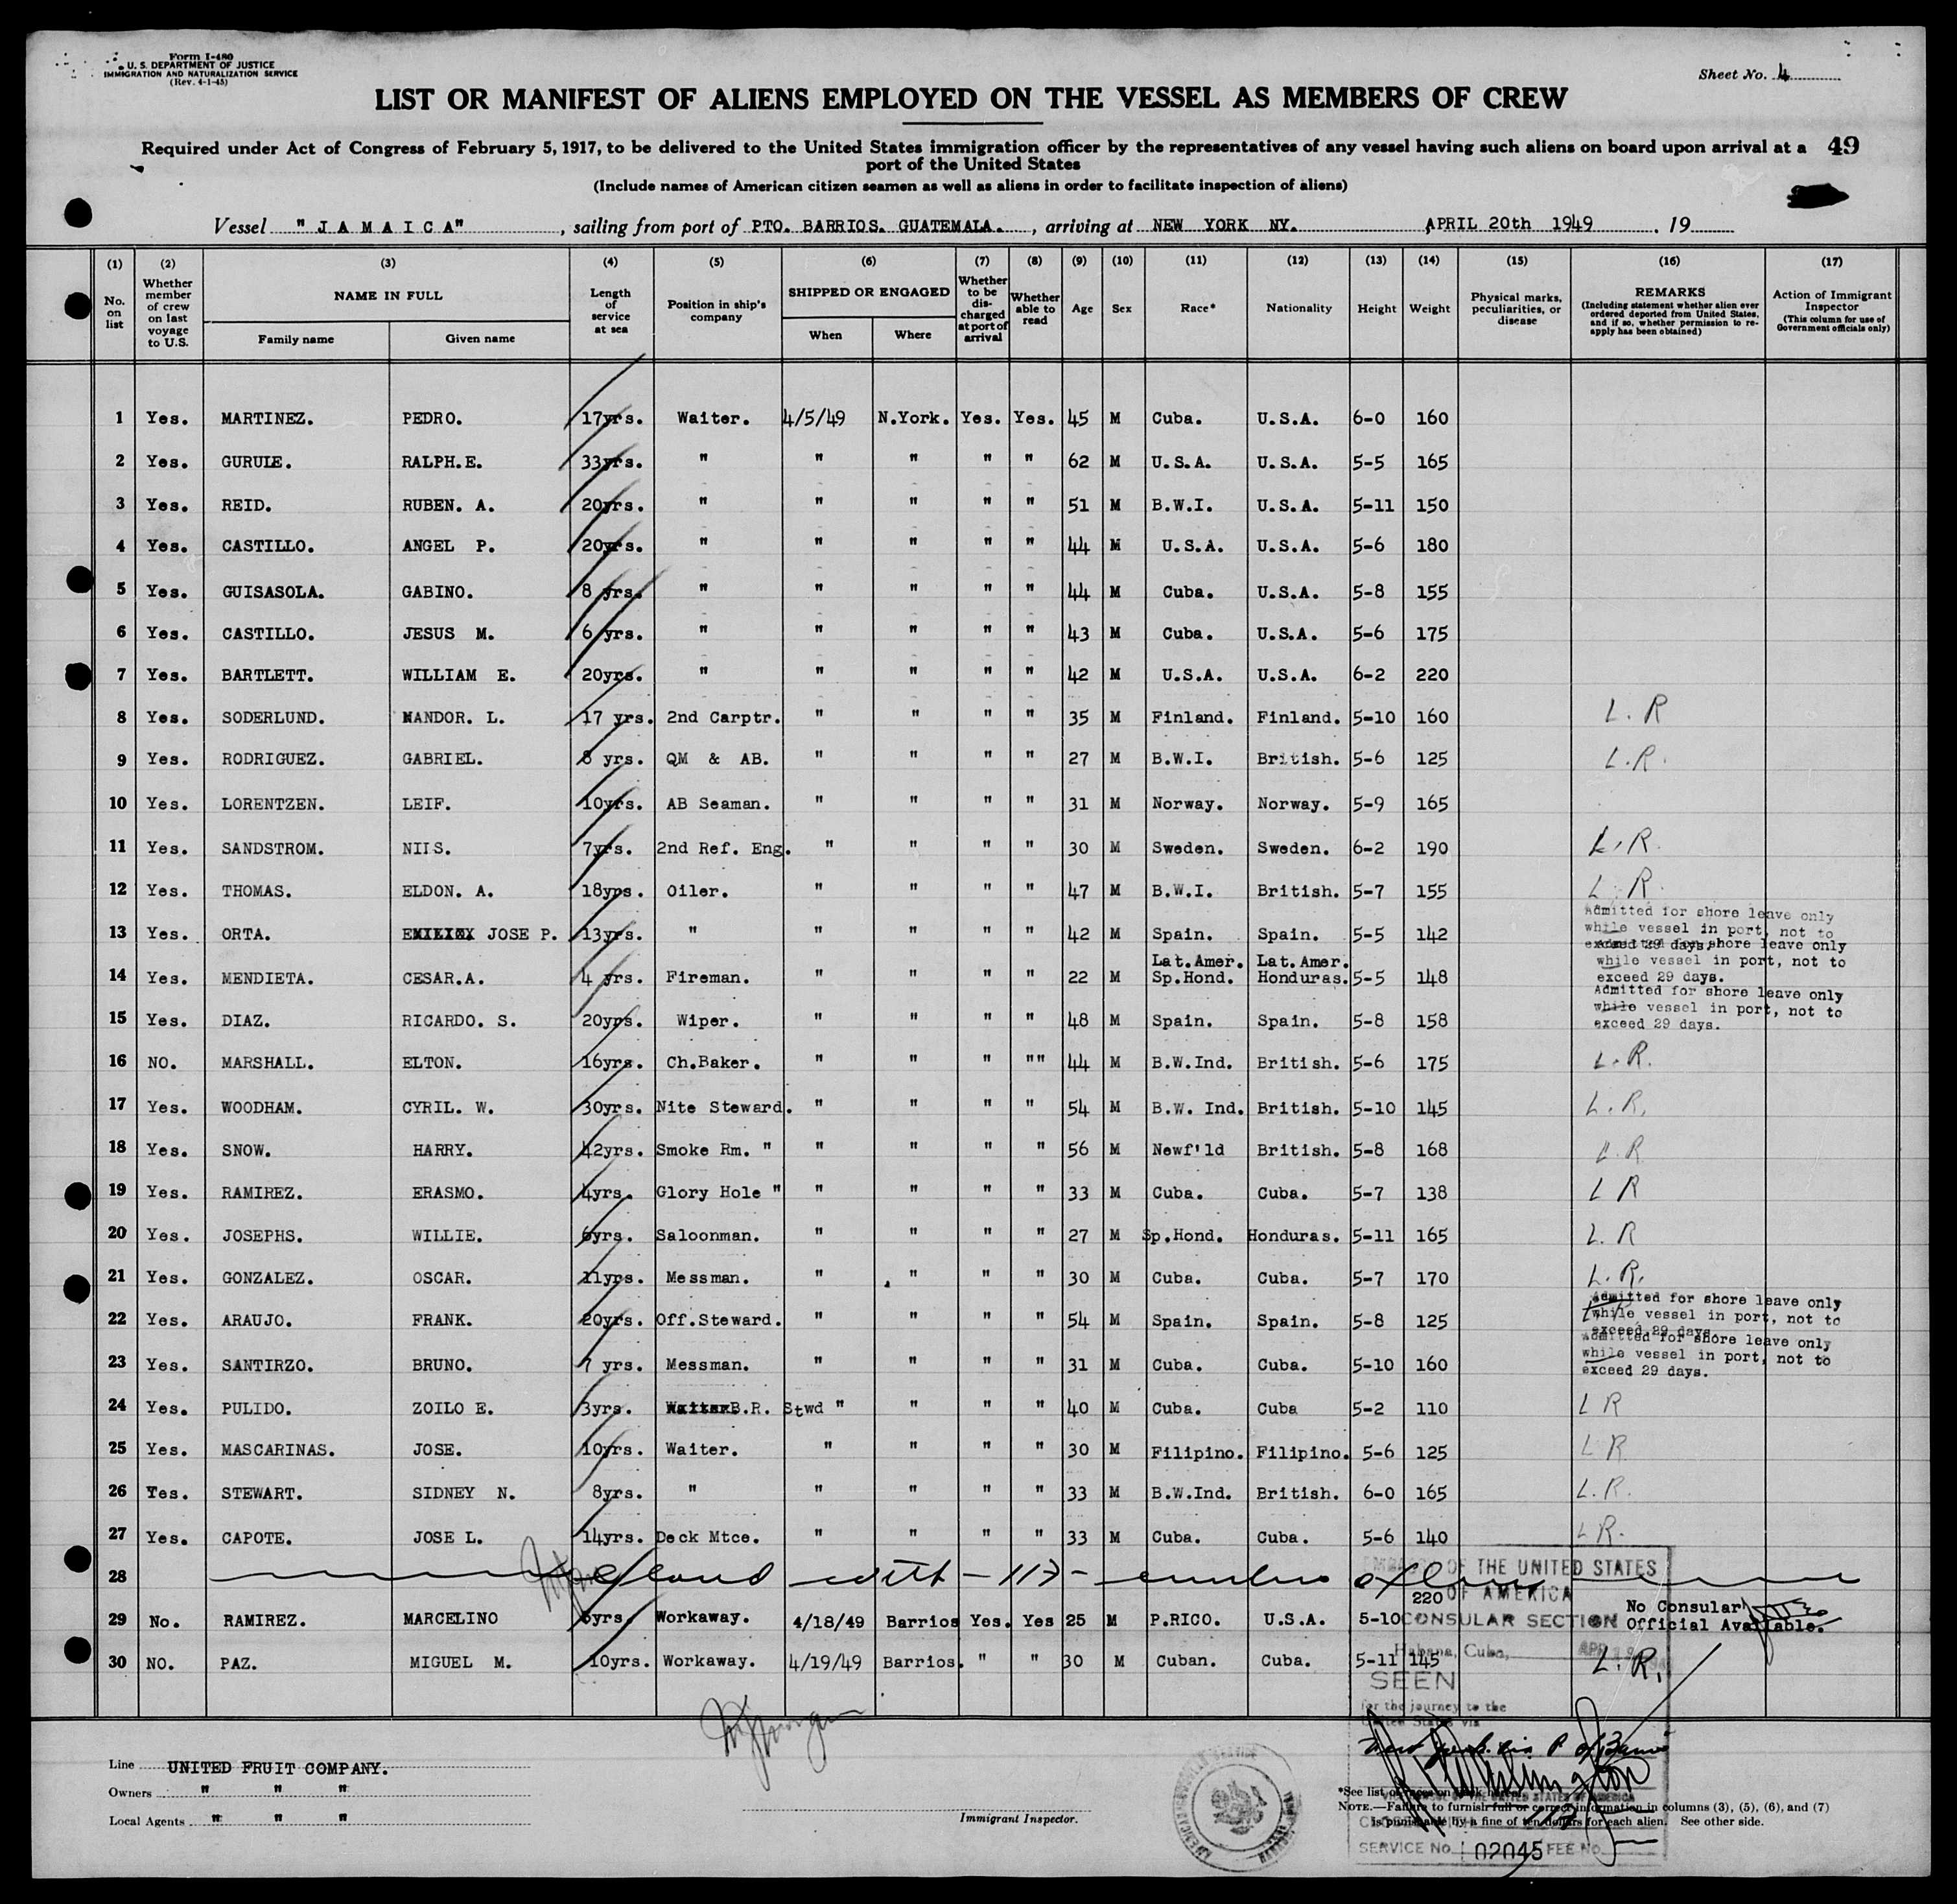 Form I-480
U. S. DEPARTMENT OF JUSTICE
IMMIGRATION AND NATURALIZATION SERVICE
(Rev. 4-1-45)
Sheet No. 4
LIST OR MANIFEST OF ALIENS EMPLOYED ON THE VESSEL AS MEMBERS OF CREW
Required under Act of Congress of February 5, 1917, to be delivered to the United States immigration officer by the representatives of any vessel having such aliens on board upon arrival at a 49
port of the United States
(Include names of American citizen seamen as well as aliens in order to facilitate inspection of aliens)
Vessel "JAMAICA", sailing from port of PTO. BARRIOS. GUATEMALA., arriving at NEW YORK NY. APRIL 20th 1949. 19
(1) (2) (3) (4) (5) (6) (7) (8) (9) (10) (11) (12) (13) (14) (15) (16) (17)
No. on list
Whether member of crew on last voyage to U.S.
NAME IN FULL
Family name Given name
Length of service at sea
Position in ship's company
SHIPPED OR ENGAGED
When Where
Whether to be discharged at port of arrival
Whether able to read
Age
Sex
Race*
Nationality
Height
Weight
Physical marks, peculiarities, or disease
REMARKS
(Including statement whether alien ever ordered deported from United States, and if so, whether permission to re-apply has been obtained)
Action of Immigrant Inspector
(This column for use of Government officials only)
1 Yes. MARTINEZ. PEDRO. 17yrs. Waiter. 4/5/49 N.York. Yes. Yes. 45 M Cuba. U.S.A. 6-0 160
2 Yes. GURULE. RALPH.E. 33yrs. " " " " " 62 M U.S.A. U.S.A. 5-5 165
3 Yes. REID. RUBEN. A. 20yrs. " " " " " 51 M B.W.I. U.S.A. 5-11 150
4 Yes. CASTILLO. ANGEL P. 20yrs. " " " " " 44 M U.S.A. U.S.A. 5-6 180
5 Yes. GUISASOLA. GABINO. 8 yrs. " " " " " 44 M Cuba. U.S.A. 5-8 155
6 Yes. CASTILLO. JESUS M. 6 yrs. " " " " " 43 M Cuba. U.S.A. 5-6 175
7 Yes. BARTLETT. WILLIAM E. 20yrs. " " " " " 42 M U.S.A. U.S.A. 6-2 220
8 Yes. SODERLUND. MANDOR. L. 17 yrs. 2nd Carptr. " " " " 35 M Finland. Finland. 5-10 160 L. R
9 Yes. RODRIGUEZ. GABRIEL. 8 yrs. QM & AB. " " " " 27 M B.W.I. British. 5-6 125 L.R.
10 Yes. LORENTZEN. LEIF. 10yrs. AB Seaman. " " " " 31 M Norway. Norway. 5-9 165
11 Yes. SANDSTROM. NILS. 7yrs. 2nd Ref. Eng. " " " " 30 M Sweden. Sweden. 6-2 190 L.R.
12 Yes. THOMAS. ELDON. A. 18yrs. Oiler. " " " " 47 M B.W.I. British. 5-7 155 L. R.
13 Yes. ORTA. JOSE P. 13yrs. " " " " " 42 M Spain. Spain. 5-5 142 Admitted for shore leave only while vessel in port, not to exceed 29 days.
14 Yes. MENDIETA. CESAR.A. 4 yrs. Fireman. " " " " 22 M Lat.Amer. Sp.Hond. Lat.Amer. Honduras. 5-5 148 Admitted for shore leave only while vessel in port, not to exceed 29 days.
15 Yes. DIAZ. RICARDO. S. 20yrs. Wiper. " " " " 48 M Spain. Spain. 5-8 158 Admitted for shore leave only while vessel in port, not to exceed 29 days.
16 NO. MARSHALL. ELTON. 16yrs. Ch.Baker. " " " "" 44 M B.W.Ind. British. 5-6 175 L.R.
17 Yes. WOODHAM. CYRIL. W. 30yrs. Nite Steward. " " " " 54 M B.W. Ind. British. 5-10 145 L.R.
18 Yes. SNOW. HARRY. 42yrs. Smoke Rm. " " " " " 56 M Newf'ld British. 5-8 168 L.R
19 Yes. RAMIREZ. ERASMO. 4yrs. Glory Hole " " " " " 33 M Cuba. Cuba. 5-7 138 L R
20 Yes. JOSEPHS. WILLIE. 6yrs. Saloonman. " " " " 27 M Sp.Hond. Honduras. 5-11 165 L. R
21 Yes. GONZALEZ. OSCAR. 11yrs. Messman. " " " " 30 M Cuba. Cuba. 5-7 170 L.R.
22 Yes. ARAUJO. FRANK. 20yrs. Off.Steward. " " " " 54 M Spain. Spain. 5-8 125 Admitted for shore leave only while vessel in port, not to exceed 29 days.
23 Yes. SANTIRZO. BRUNO. 7 yrs. Messman. " " " " 31 M Cuba. Cuba. 5-10 160 Admitted for shore leave only while vessel in port, not to exceed 29 days.
24 Yes. PULIDO. ZOILO E. 3yrs. B.R. Stwd " " " " 40 M Cuba. Cuba 5-2 110 L R
25 Yes. MASCARINAS. JOSE. 10yrs. Waiter. " " " " 30 M Filipino. Filipino. 5-6 125 L R
26 Yes. STEWART. SIDNEY N. 8yrs. " " " " " 33 M B.W.Ind. British. 6-0 165 L.R.
27 Yes. CAPOTE. JOSE L. 14yrs. Deck Mtce. " " " " 33 M Cuba. Cuba. 5-6 140 L R.
28 Closed with - 117 - members of crew
29 No. RAMIREZ. MARCELINO 6yrs. Workaway. 4/18/49 Barrios Yes. Yes 25 M P.RICO. U.S.A. 5-10 220 No Consular Official Available.
30 NO. PAZ. MIGUEL M. 10yrs. Workaway. 4/19/49 Barrios. " " 30 M Cuban. Cuba. 5-11 145 L.R.
EMBASSY OF THE UNITED STATES
OF AMERICA
CONSULAR SECTION
Habana, Cuba, APR
SEEN
for the journey to the
United States via
Line UNITED FRUIT COMPANY.
Owners " " "
Local Agents " " "
Immigrant Inspector.
*See list of races on back hereof.
NOTE.—Failure to furnish full or correct information in columns (3), (5), (6), and (7)
is punishable by a fine of ten dollars for each alien. See other side.
SERVICE No. 02045 FEE No.